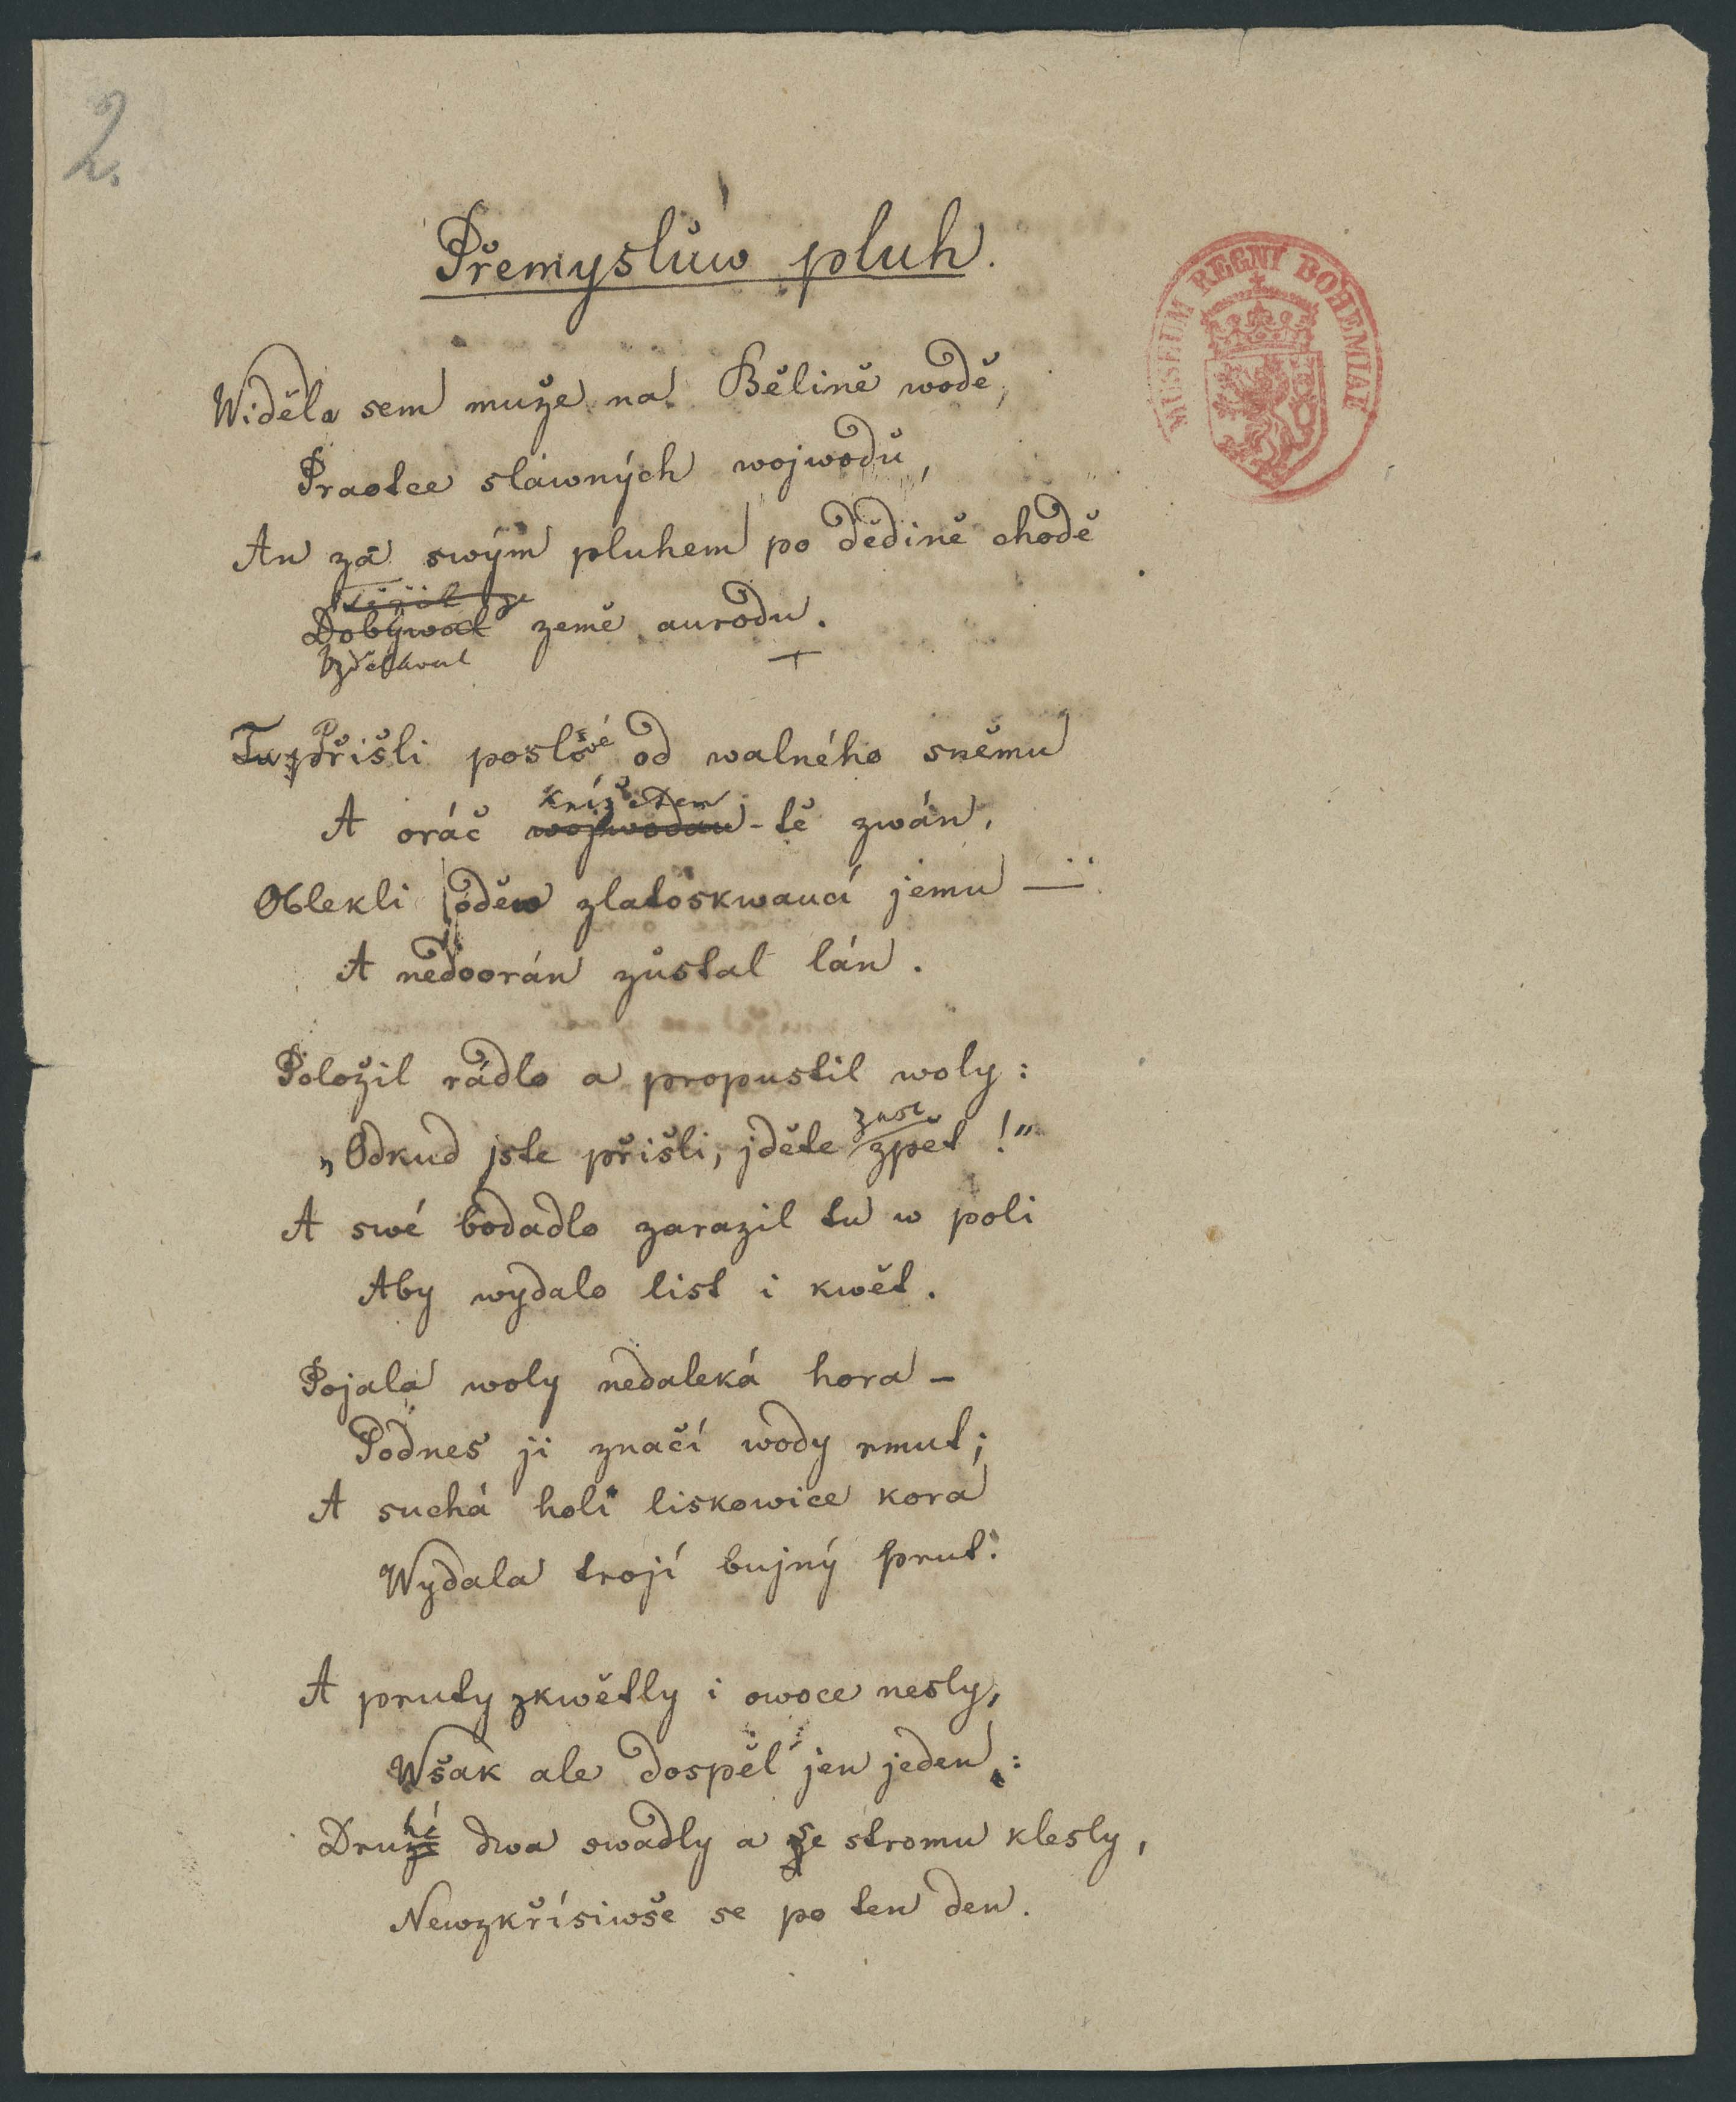 2.
Přemyslůw pluh.
MUSEUM REGNI BOHEMIAE
Widěla sem muže na Bělině wodě,
Praotce sláwných wojwodů,
An za swým pluhem po dědině chodě
Těžil ze
Dobýwal země aurodu.
Vzdělával
Tu přišli poslové od walného sněmu
knížetem
A oráč wojwodau-tě zwán.
Oblekli oděw zlatoskwaucí jemu —
A nedoorán zůstal lán.
Položil rádlo a propustil woly:
zase
„Odkud jste přišli, jděte zpět!"
A swé bodadlo zarazil tu w poli
Aby wydalo list i kwět.
Pojala woly nedaleká hora –
Podnes ji značí wody rmut;
A suchá holi liskowice kora
Wydala trojí bujný prut.
A pruty zkwětly i owoce nesly,
Wšak ale dospěl jen jeden:
hé
Druzí dwa swadly a se stromu klesly,
Newzkřísiwše se po ten den.